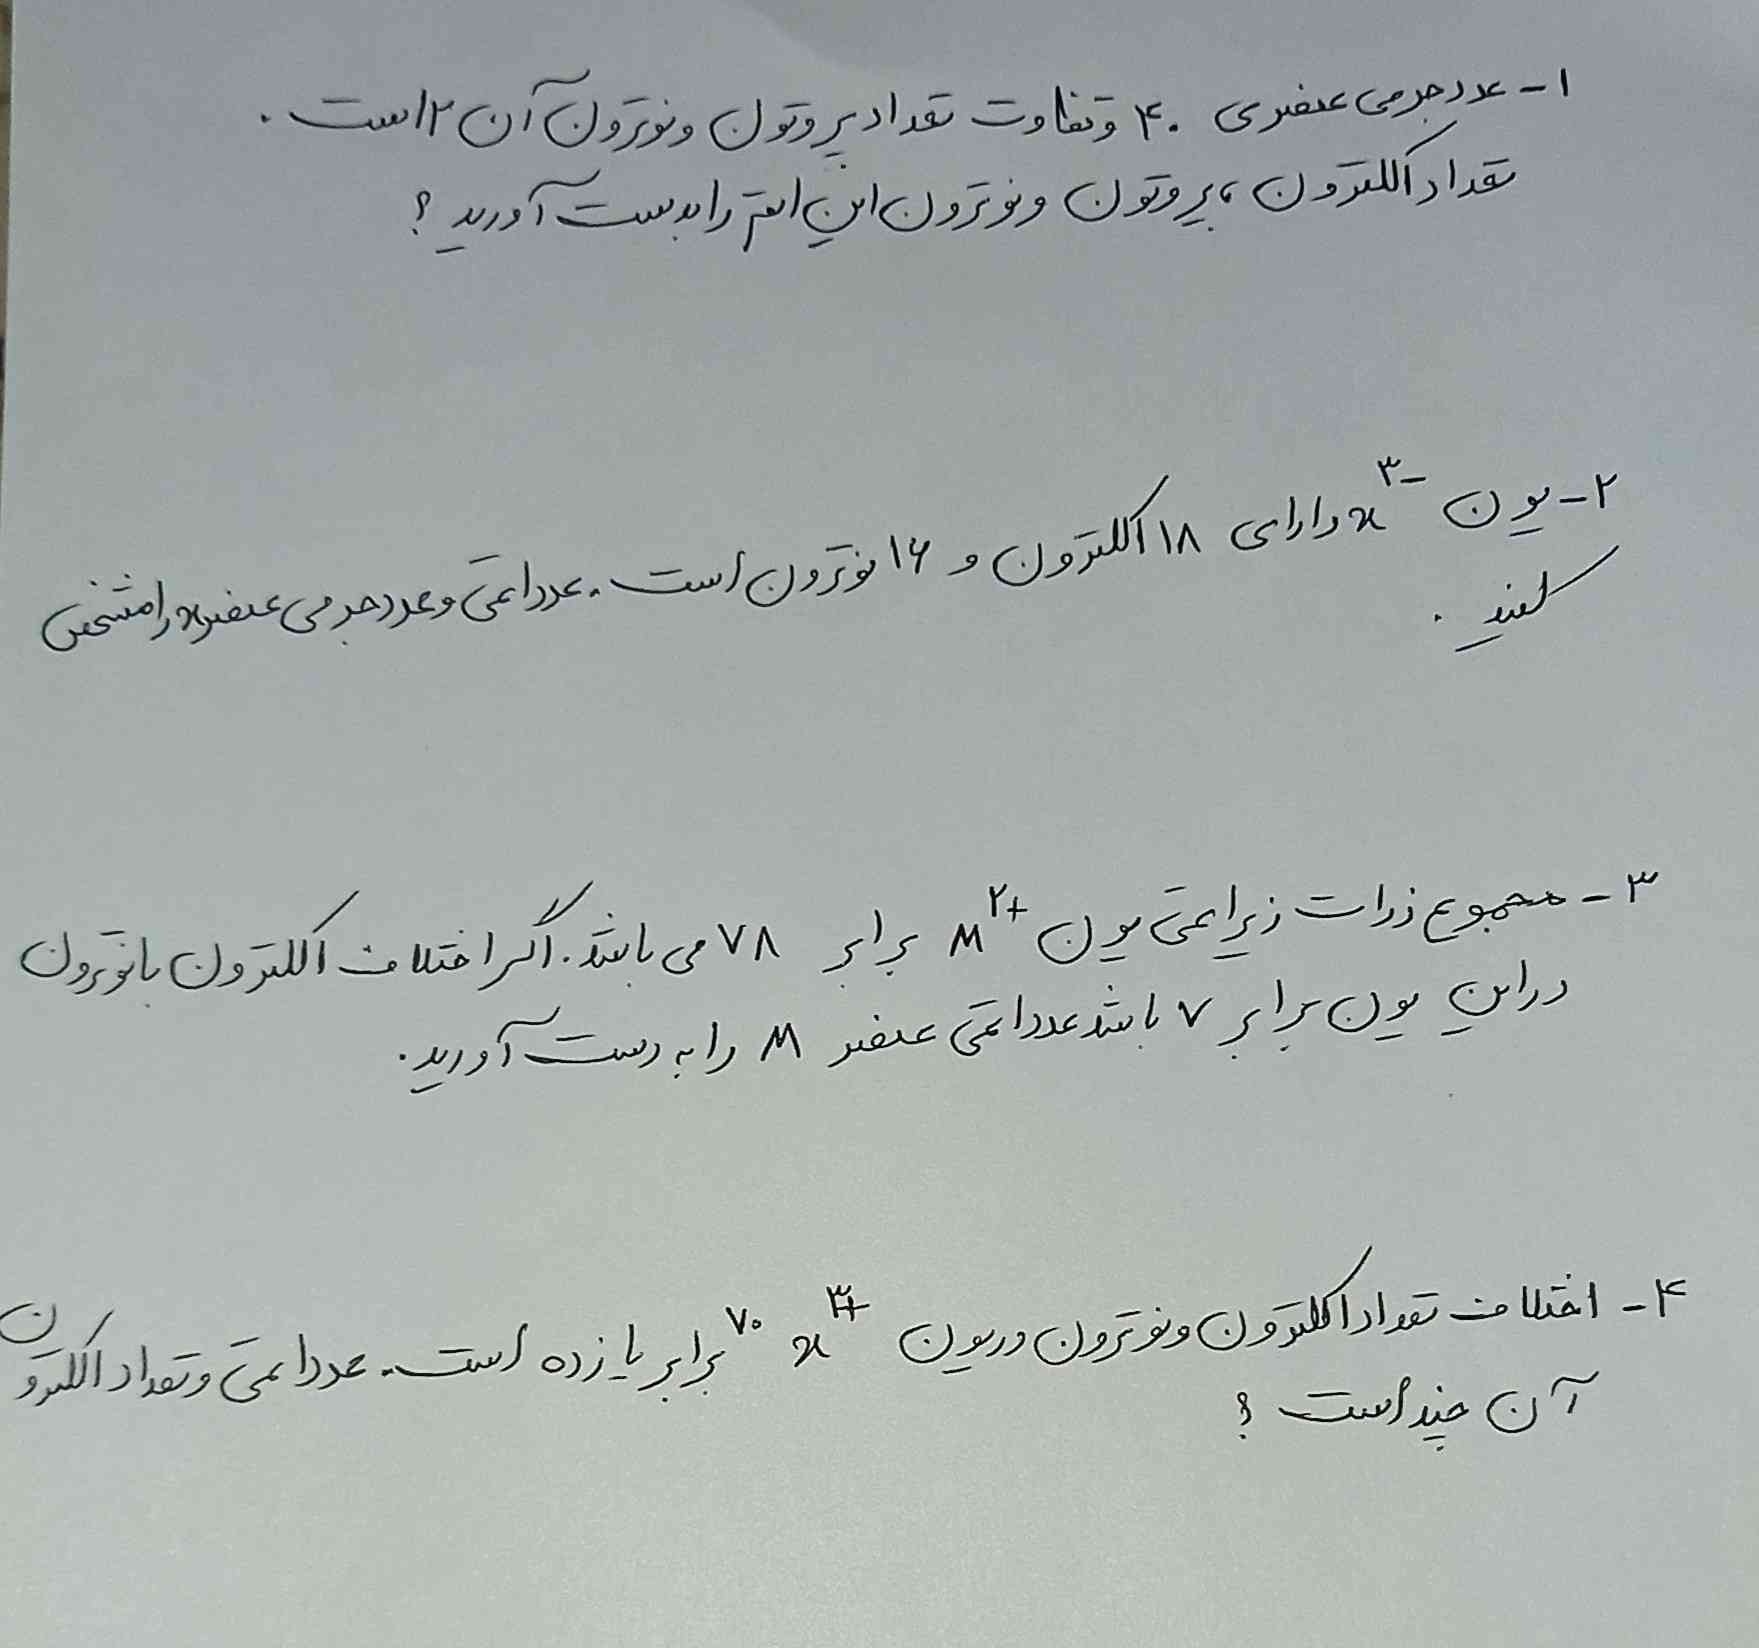 ۱- عدد جرمی عنصری ۴۰ و تفاوت تعداد پروتون و نوترون آن ۲ است.
تعداد الکترون، پروتون و نوترون این اتم را بدست آورید؟
۲- یون x³⁻ دارای ۱۸ الکترون و ۱۶ نوترون است. عدد اتمی و عدد جرمی عنصر x را مشخص
کنید.
۳- مجموع ذرات زیراتمی یون M²⁺ برابر ۷۸ می باشد. اگر اختلاف الکترون با نوترون
در این یون برابر ۷ باشد عدد اتمی عنصر M را به دست آورید.
۴- اختلاف تعداد الکترون و نوترون در یون ⁷⁰x³⁺ برابر یازده است. عدد اتمی و تعداد الکترون
آن چند است؟